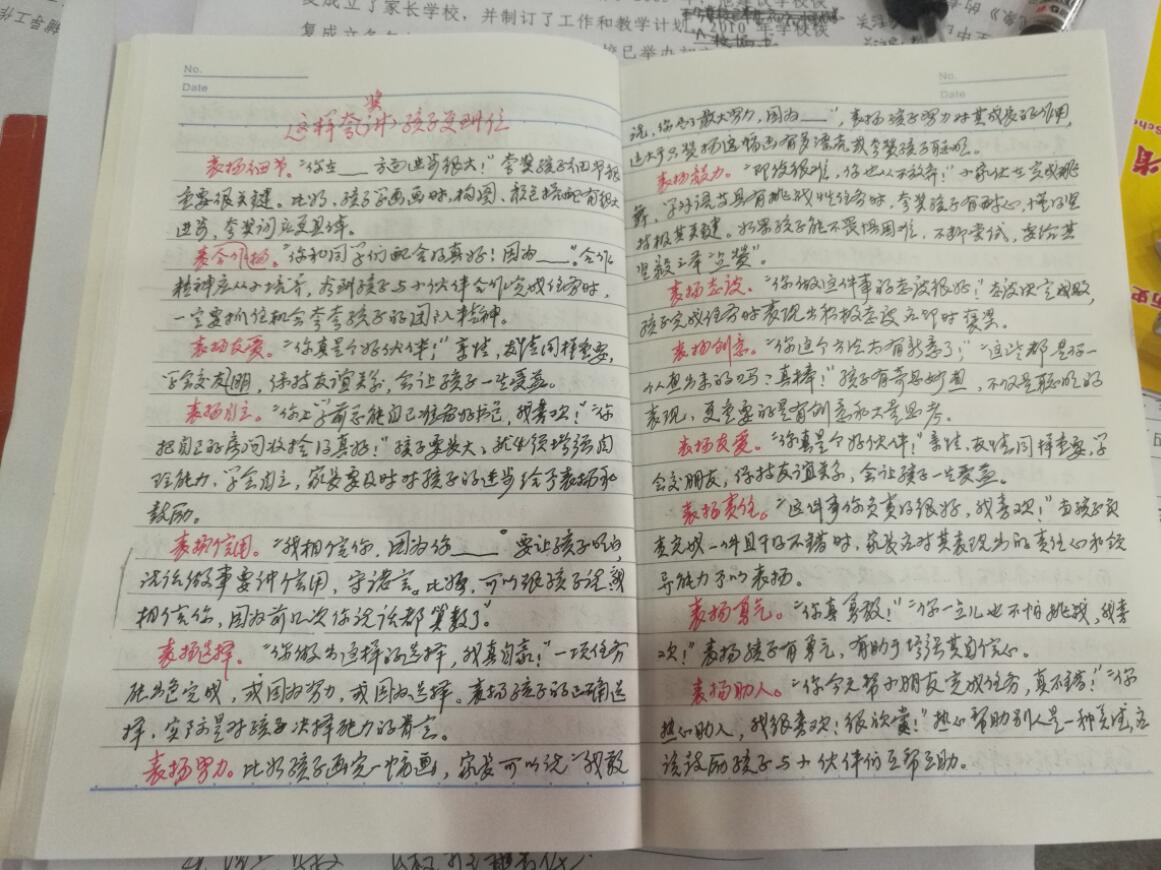 复成立了家长学校，并制订了工作和教学计划
2010年学校恢
No.
Date
这样夸(讲)孩子更到位
奖
表扬细节。“你在___方面进步很大！”夸奖孩子细节很
重要很关键。比如，孩子写画画时，构图、颜色搭配有很大
进步，夸奖词应更具体。
表合作扬。“你和同学们配合得真好！因为___”。合作
精神应从小培养，看到孩子与小伙伴合作完成任务时，
一定要抓住机会夸夸孩子的团队精神。
表扬友爱。“你真是个好伙伴！”亲情，友情同样重要，
学会交友朋，保持友谊关系，会让孩子一生受益。
表扬自立。“你上学前总能自己准备好书包，我喜欢！”“你
把自己的房间收拾得真好！”孩子要长大，就必须增强自
理能力，学会自立，家长要及时对孩子的进步给予表扬和
鼓励。
表扬信用。“我相信你，因为你___”要让孩子明白，
说话做事要讲信用，守诺言。比如，可以跟孩子说“我
相信你，因为前几次你说话都算数了。”
表扬选择。“你做出这样的选择，我真自豪！”一项任务
能出色完成，或因为努力，或因为选择。表扬孩子的正确选
择，实际是对孩子决择能力的肯定。
表扬努力。比如孩子画完一幅画，家长可以说“我敢
No.
Date
说，你尽了最大努力，因为___”，表扬孩子努力对其成长的作用，
远大于只赞扬这幅画有多漂亮或夸赞孩子聪明。
表扬毅力。“即使很难，你也从不放弃！”小家伙在完成跳
舞，学外语等具有挑战性任务时，夸奖孩子有耐心，懂得坚
持极其关键。如果孩子能不畏惧困难，不断尝试，要给其
坚毅之举“点赞”。
表扬态度。“你做这件事的态度很好！”态度决定成败，
孩子完成任务时表现出积极态度应即时褒奖。
表扬创意。“你这个方法太有新意了！”“这些都是你一
个人想出来的吗？真棒！”孩子有奇思妙想，不仅是聪明的
表现，更重要的是有创意和大量思考。
表扬友爱。“你真是个好伙伴！”亲情，友情同样重要，学
会交朋友，保持友谊关系，会让孩子一生受益。
表扬责任。“这件事你负责得很好，我喜欢！”当孩子负
责完成一件且干得不错时，家长应对其表现出的责任心和领
导能力予以表扬。
表扬勇气。“你真勇敢！”“你一点儿也不怕挑战，我喜
欢！”表扬孩子有勇气，有助于增强其自信心。
表扬助人。“你今天帮小朋友完成任务，真不错！”“你
热心助人，我很喜欢！很欣赏！”热心帮助别人是一种美德，应
该鼓励孩子与小伙伴们互帮互助。
历史